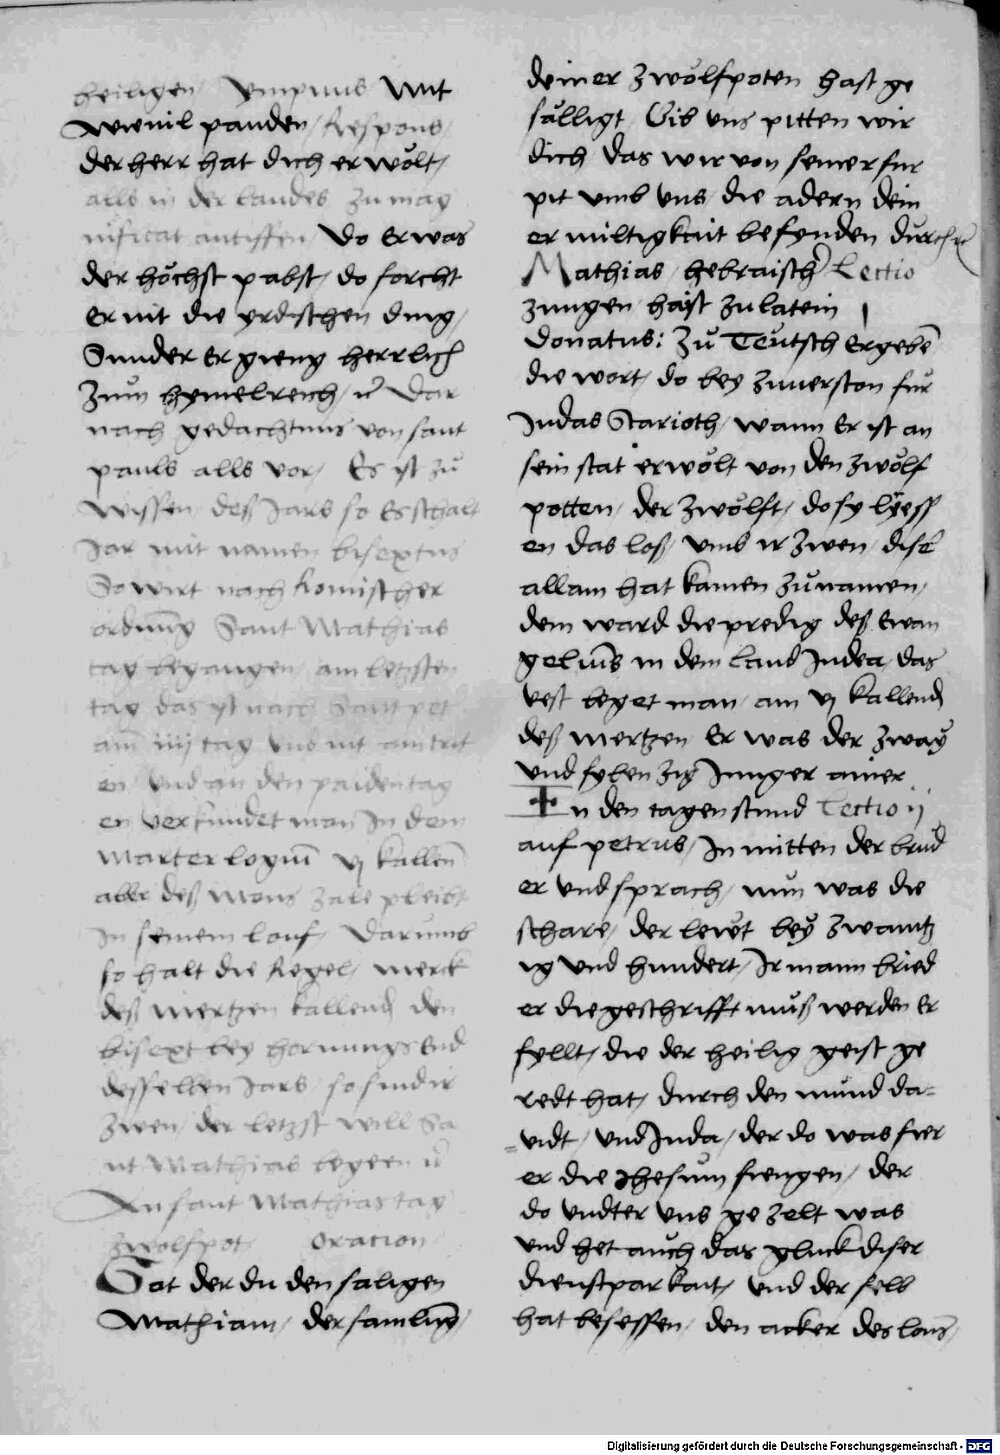 heiligen ympnus Mit
wienil panden / Respons
der herr hat dich erwölt /
alls in der laudes zu mag
nificat antiffen / Do er was
der höchst pabst / do forcht
er nit die yrdischen ding /
Sunder er gieng herrlich
zum hymelreich / vñ Dar
nach gedachtnus von sant
pauls alls vor / Es ist zů
wissen / deß Jars so es schalt
Jar mit namen bisextus
So wirt nach Romischer
ordnung Sant Mathias
tag begangen / am letzsten
tag das ist nach Sant pet
am iiij tag vnd nit am trit
en / vnd an den paiden tag
en verkundet man In dem
Marterlogium vj kallend
aber deß Mons zale pleibt
In seinem louf / Darumb
so halt die Regel / merck
deß mertzen kallend den
bisext bey hornungs end
desselben Jars / so sind ir
zwen / der letzst will Sa
nt Mathias begeen vñ
An sant Mathias tag
zwolfpot oracion
Got der du den saligen
Mathiam / der samlung /
deiner zwölfpoten hast ge
sälligt / Gib vns pitten wir
dich / das wir von seiner fur
pit vmb vns / die adern dein
er miltigkait befynden durch
Mathias / hebraisch Lectio
zungen / haist zu latein j
Donatus: Zů Teütsch Ergebē
die wort / do bey zuuerston fur
Judas Scarioth / wann er ist an
sein stat erwölt von den zwölf
potten / der zwölft / do sy lyess
en das loß / vmb ir zwen / diser
allain hat kainen zůnamen /
dem ward die predig deß Ewan
geliums in dem land Judea / das
vest beget man / am vj kallend
deß mertzen Er was der zway
vnd syben zig Junger ainer
In den tagen stund Lectio ij
auf petrus / In mitten der brud
er vnd sprach / nun was die
schare / der lewt bey zwaintz
ig vnd hundert / Ir mann bried
er die geschrifft muß werden er
fyllt / die der heilig geist ge
redt hat / durch den mund da-
-uidt / vnd Juda / der do was fier
er die Jhesum fiengen / der
do vndter vns gezelt was
vnd het auch das gluck diser
dienstparkait / vnd der selb
hat besessen / den acker des lons /
Digitalisierung gefördert durch die Deutsche Forschungsgemeinschaft - DFG